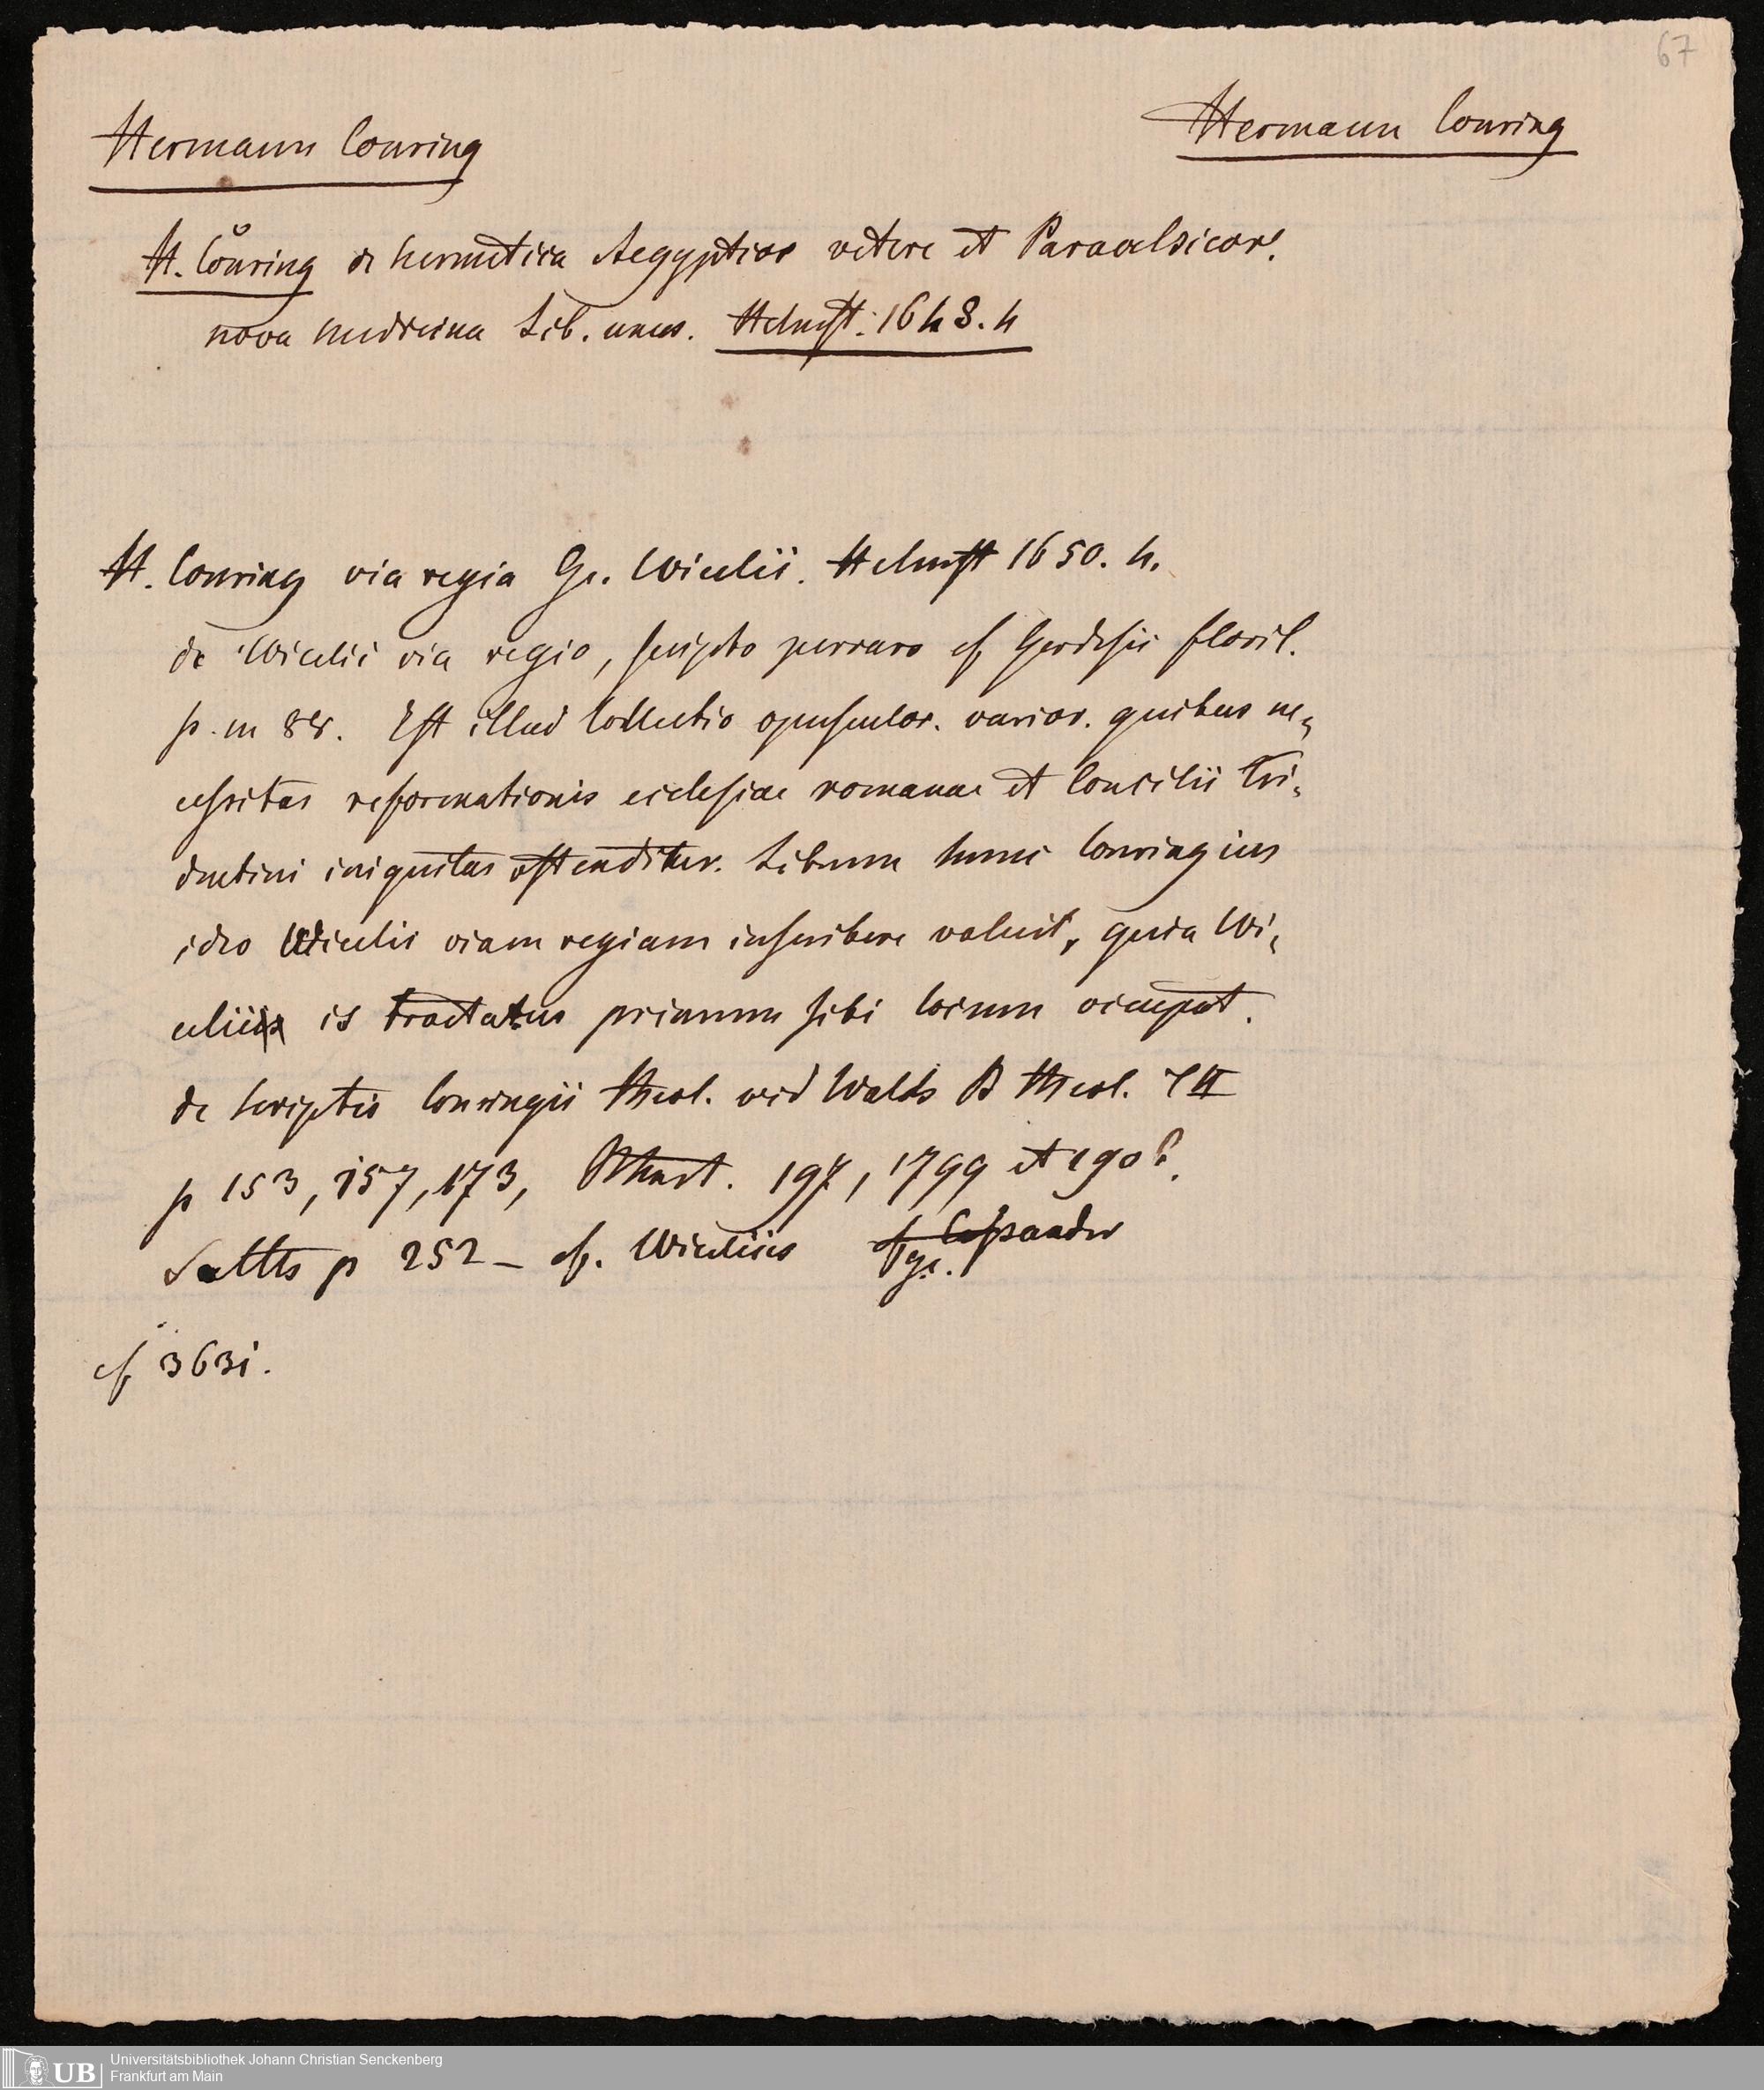 67
Hermann Conring
Hermann Conring
H. Conring de hermetica Aegyptior vetere et Paracelsicor.
nova medicina Lib. unus. Helmst: 1648. 4
H. Conring via regia Ge. Wicelii. Helmst 1650. 4.
de Wicelii via regia, scripto perraro cf Gerdesii floril.
p. m 88. Est illud Collectio opusculor. varior. quibus ne-
cessitas reformationis ecclesiae romanae et Concilii tri-
dentini iniquitas ostenditur. Librum hunc Conringius
ideo Wicelii viam regiam inscribere voluit, quia Wi-
celii is tractatus primum sibi locum occupat.
de scriptis Conringii theol. vid Walch B theol. T II
p 153, 157, 173, 197, 1799 et 190
p 252 - cf. Wicelius cf
cf 3631.
Universitätsbibliothek Johann Christian Senckenberg
Frankfurt am Main
UB